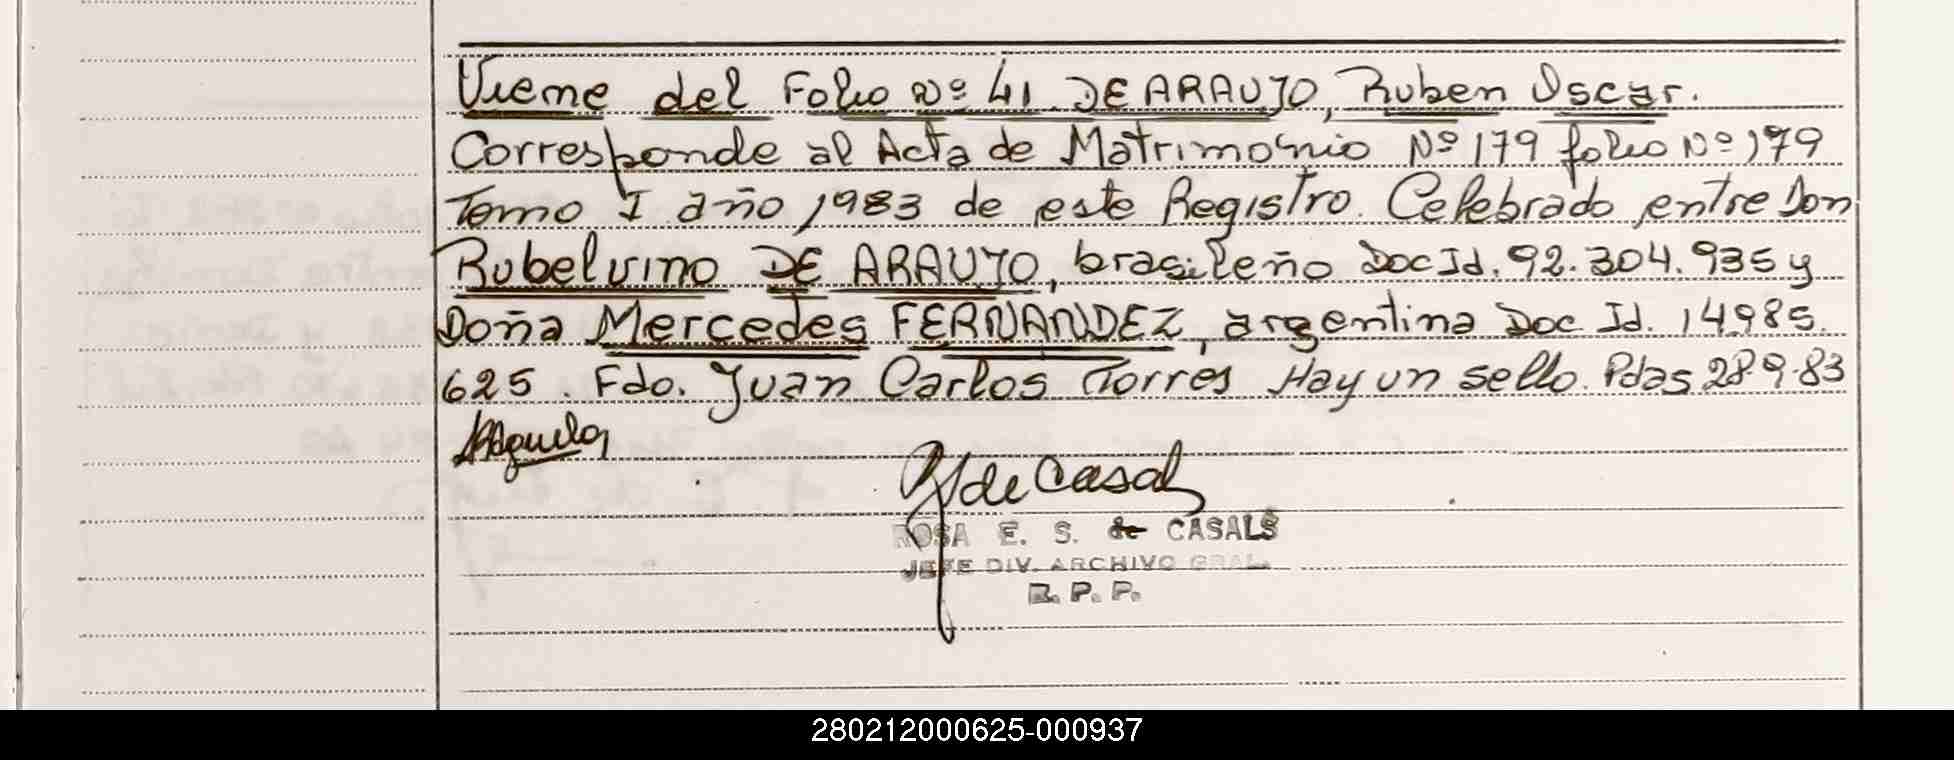 Viene del Folio Nº 41 DE ARAUJO, Ruben Oscar.
Corresponde al Acta de Matrimonio Nº 179 folio Nº 179
Tomo I año 1983 de este Registro. Celebrado entre Don
Rubelvino DE ARAUJO, brasileño Doc Id. 92.304.935 y
Doña Mercedes FERNANDEZ, argentina Doc Id. 14.985.
625. Fdo. Juan Carlos Torres Hay un sello. Pdas 28.9.83
de Casals
ROSA E. S. de CASALS
JEFE DIV. ARCHIVO GRAL.
R. P. P.
280212000625-000937